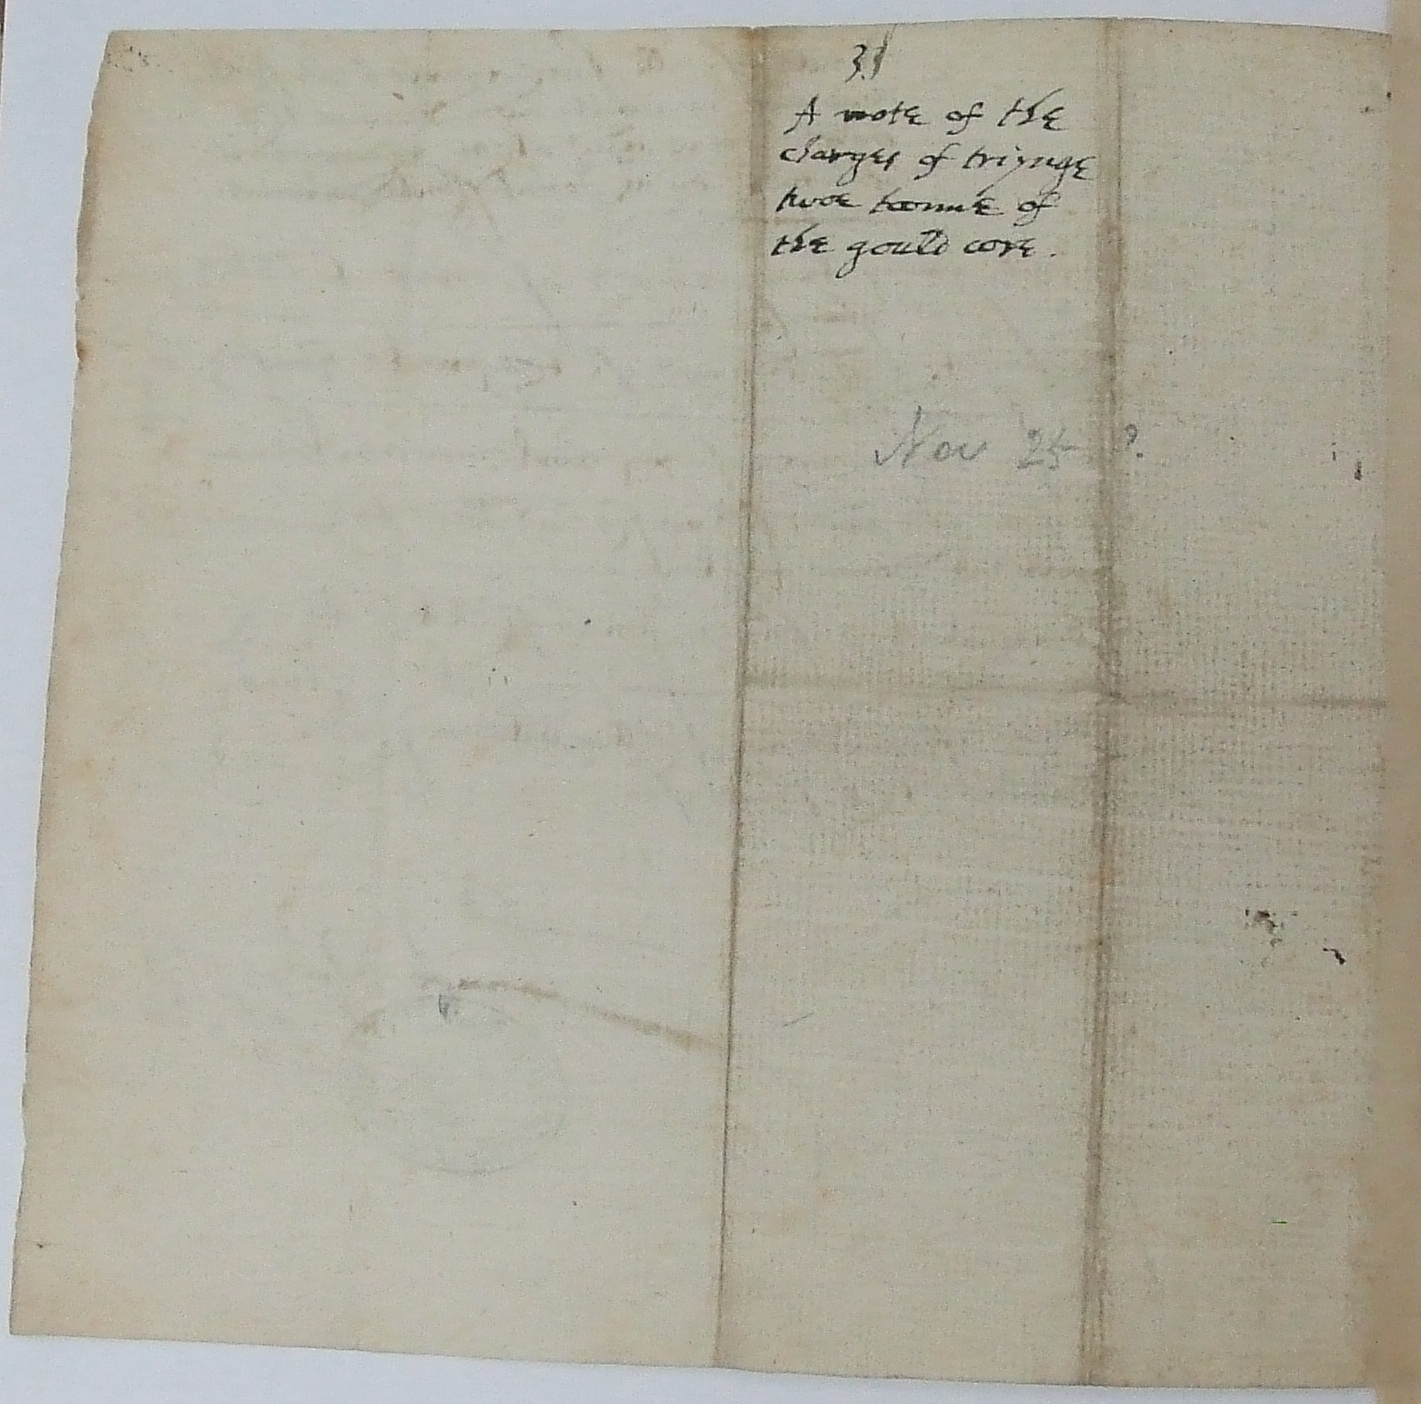 31
A note of the
charges of triynge
twoe tonne of
the gould ore.
Nov 25 ?